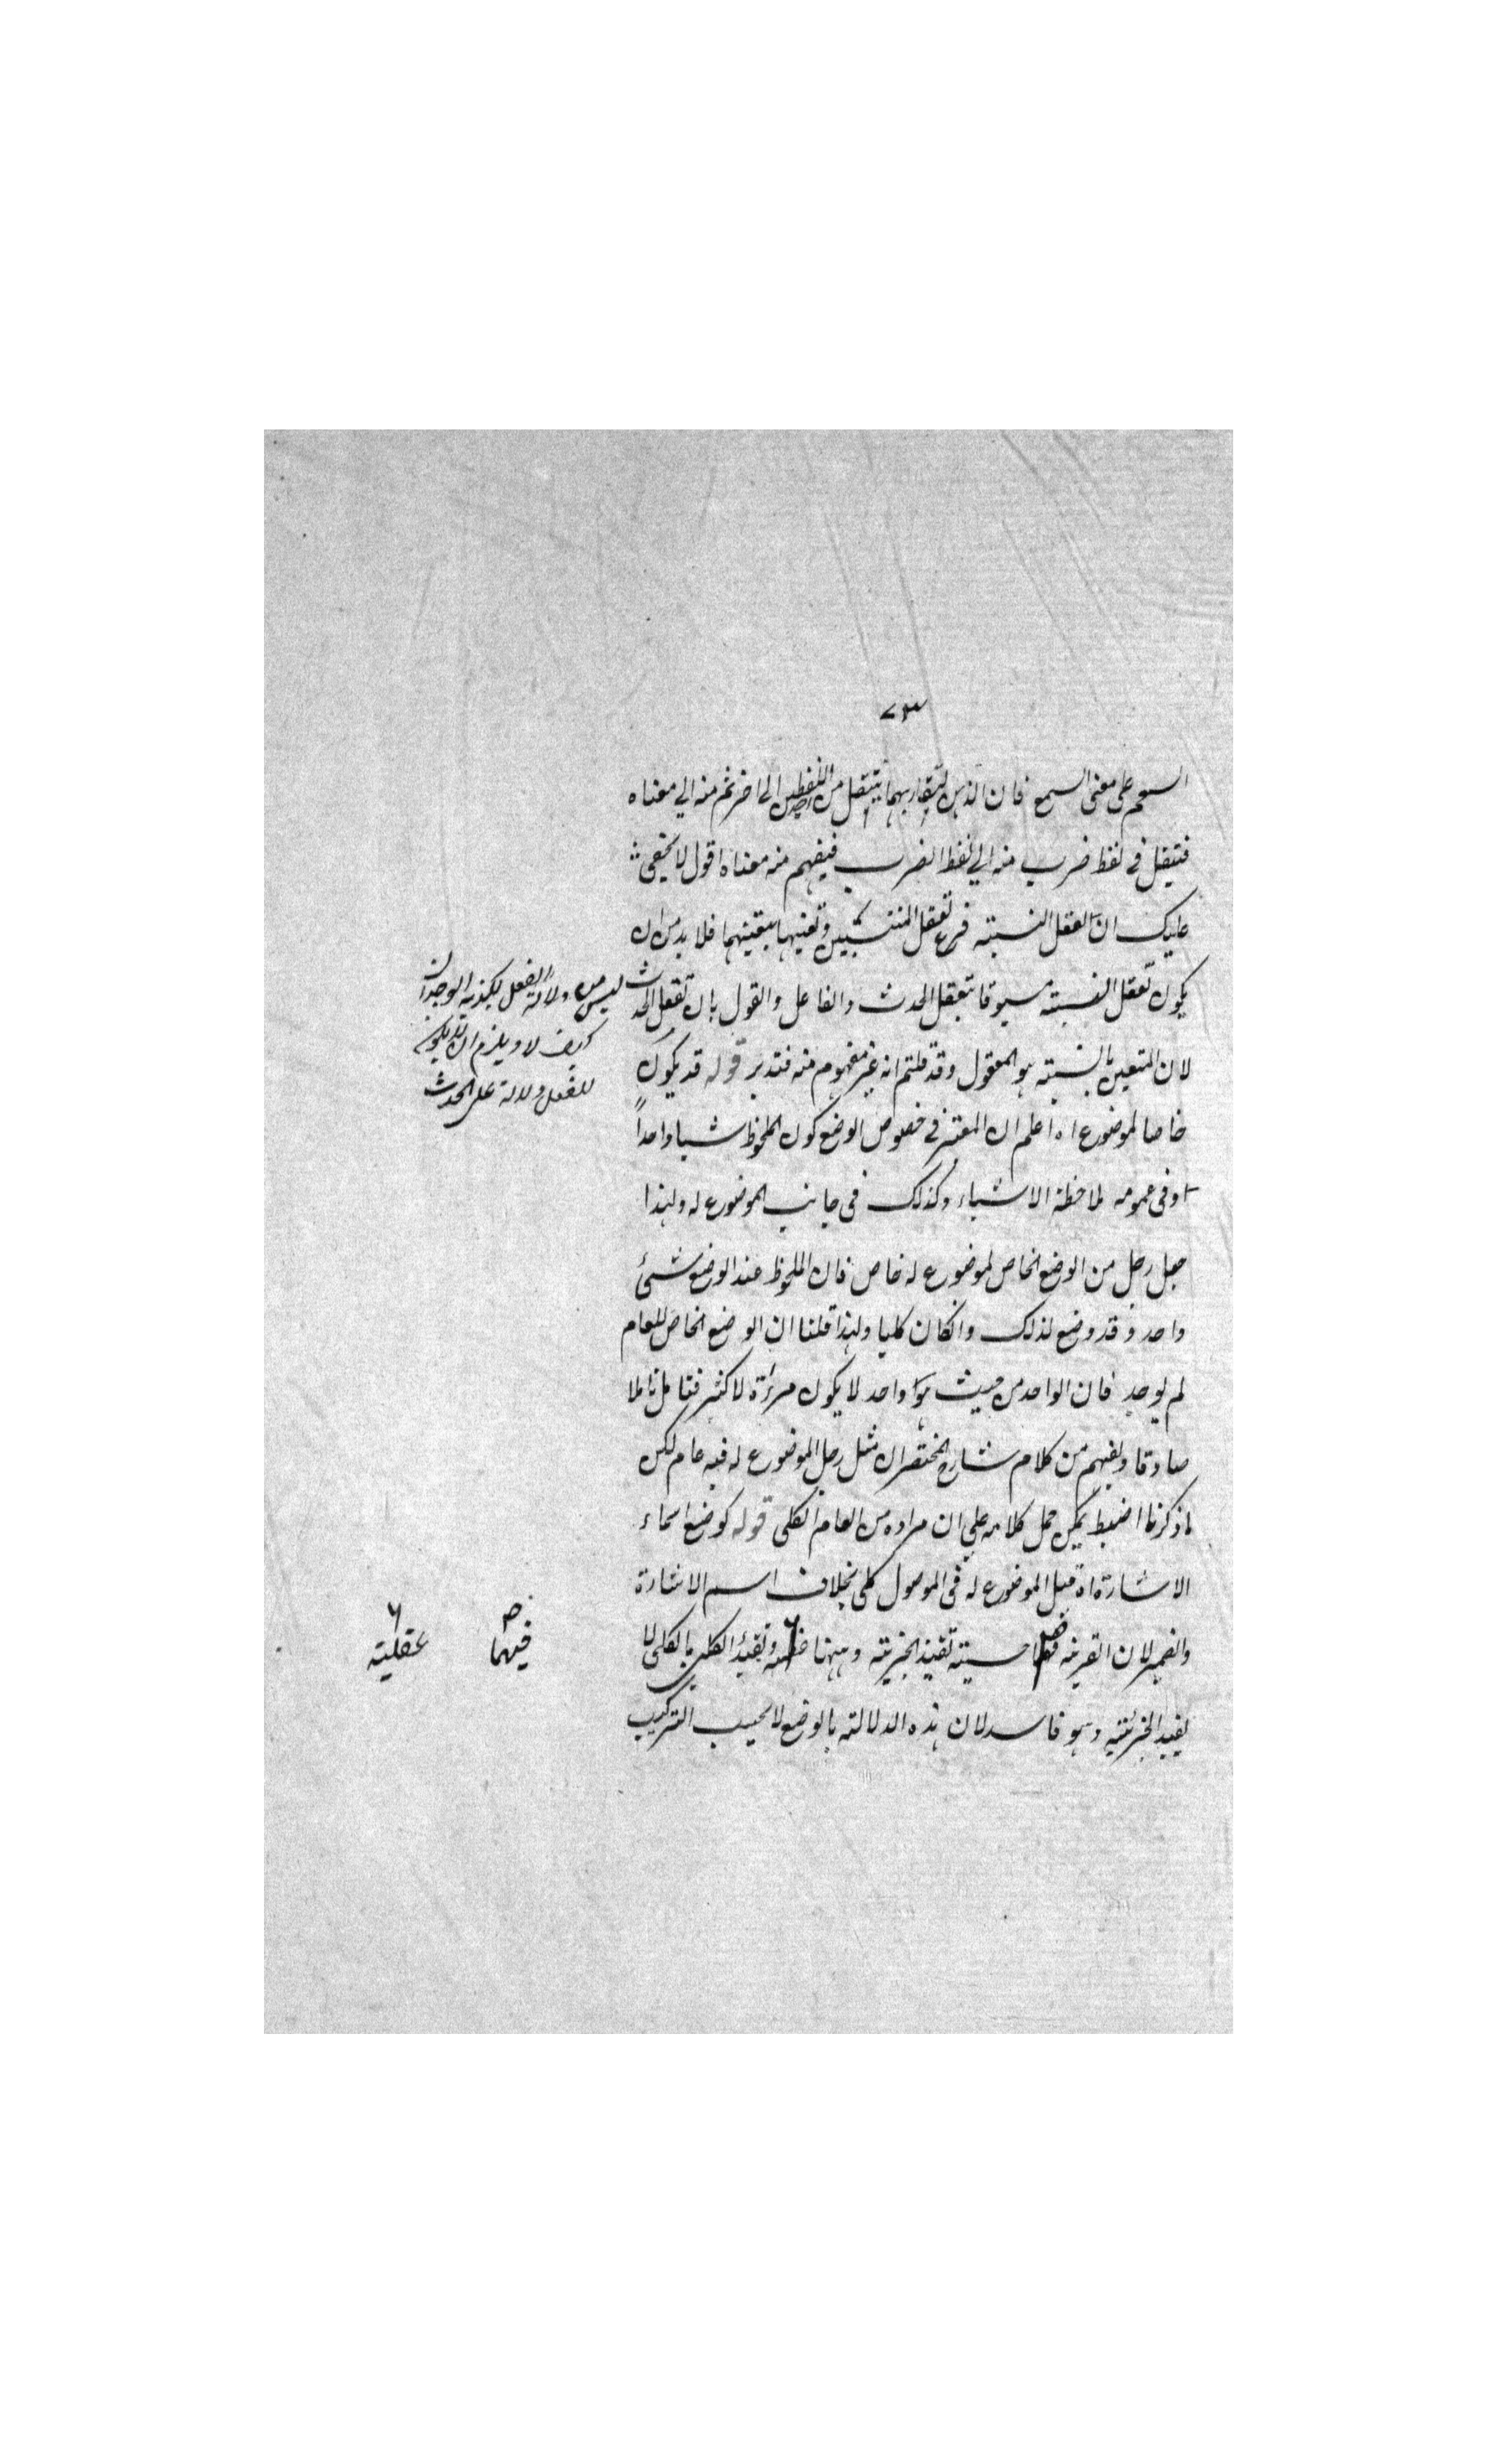 ٧٣
السمع على معنى السمع فان الذهن لتقاربهما ينتقل من اللفظين الى اخر ثم منه الى معناه
فتيقل فى لفظ ضرب منه الى لفظ الضرب فيفهم منه معناه اقول لا يخفى
عليك ان تعقل النسبته فرع تعقل المنتسبين وتعينها بتعينهما فلا بد من ان
يكون تعقل النسبته مسبوقا بتعقل الحدث والفاعل والقول بان تعقل الحدث
ليس من دلالة الفعل يكذبه الوجدان
كيف لا ويلزم ان لا يكون
للفعل دلالة على الحدث
لان المتعين بالنسبته هو المعقول وقد قلتم انه غير مفهوم منه فتدبر قوله قد يكون
خاصا لموضوع اه اعلم ان المعتبر فى خصوص الوضع كون الملحوظ شيا واحداً
او فى عمومه لملاحظة الاشياء وكذلك فى جانب الموضوع له ولهذا
جعل رجل من الوضع الخاص لموضوع له خاص فان الملحوظ عند الوضع شئ
واحد وقد وضع لذلك وانكان كليا ولهذا قلنا ان الوضع الخاص للعام
لم يوجد فان الواحد من حيث هو واحد لا يكون مرءاة لاكثر فتامل تاملا
صادقا ويفهم من كلام شارح المختصر ان مثل رجل الموضوع له فيه عام لكن
ما ذكرنا اضبط يمكن حمل كلامه على ان مراده من العام الكلى قوله كوضع اسماء
الاشارة اه قيل الموضوع له فى الموصول كلى بخلاف اسم الاشارة
والضمير لان القرينه حسيته تفيد الجزئيته وههنا وتقيد الكلى بالكلى لا
فيهما
عقليته
يفيد الجزئيته وهو فاسد لان هذه الدلالته بالوضع لا بحسب التركيب